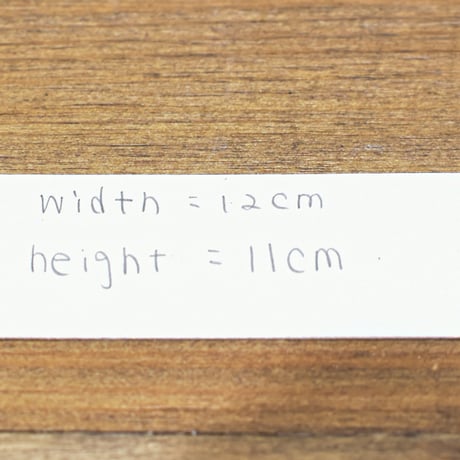 width = 12cm
height = 11cm